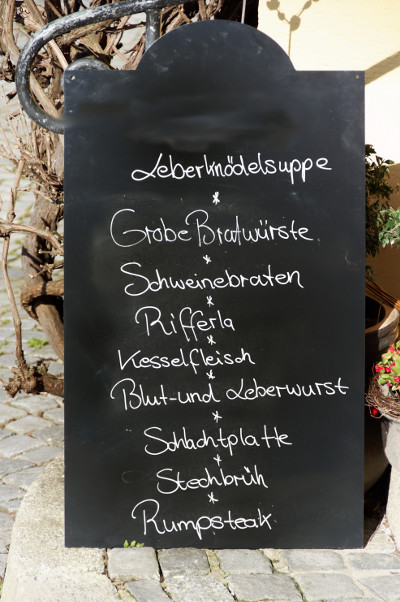 Leberknödelsuppe
*
Grobe Bratwürste
*
Schweinebraten
*
Rifferla
*
Kesselfleisch
*
Blut-und Leberwurst
*
Schlachtplatte
*
Stechbrüh
*
Rumpsteak